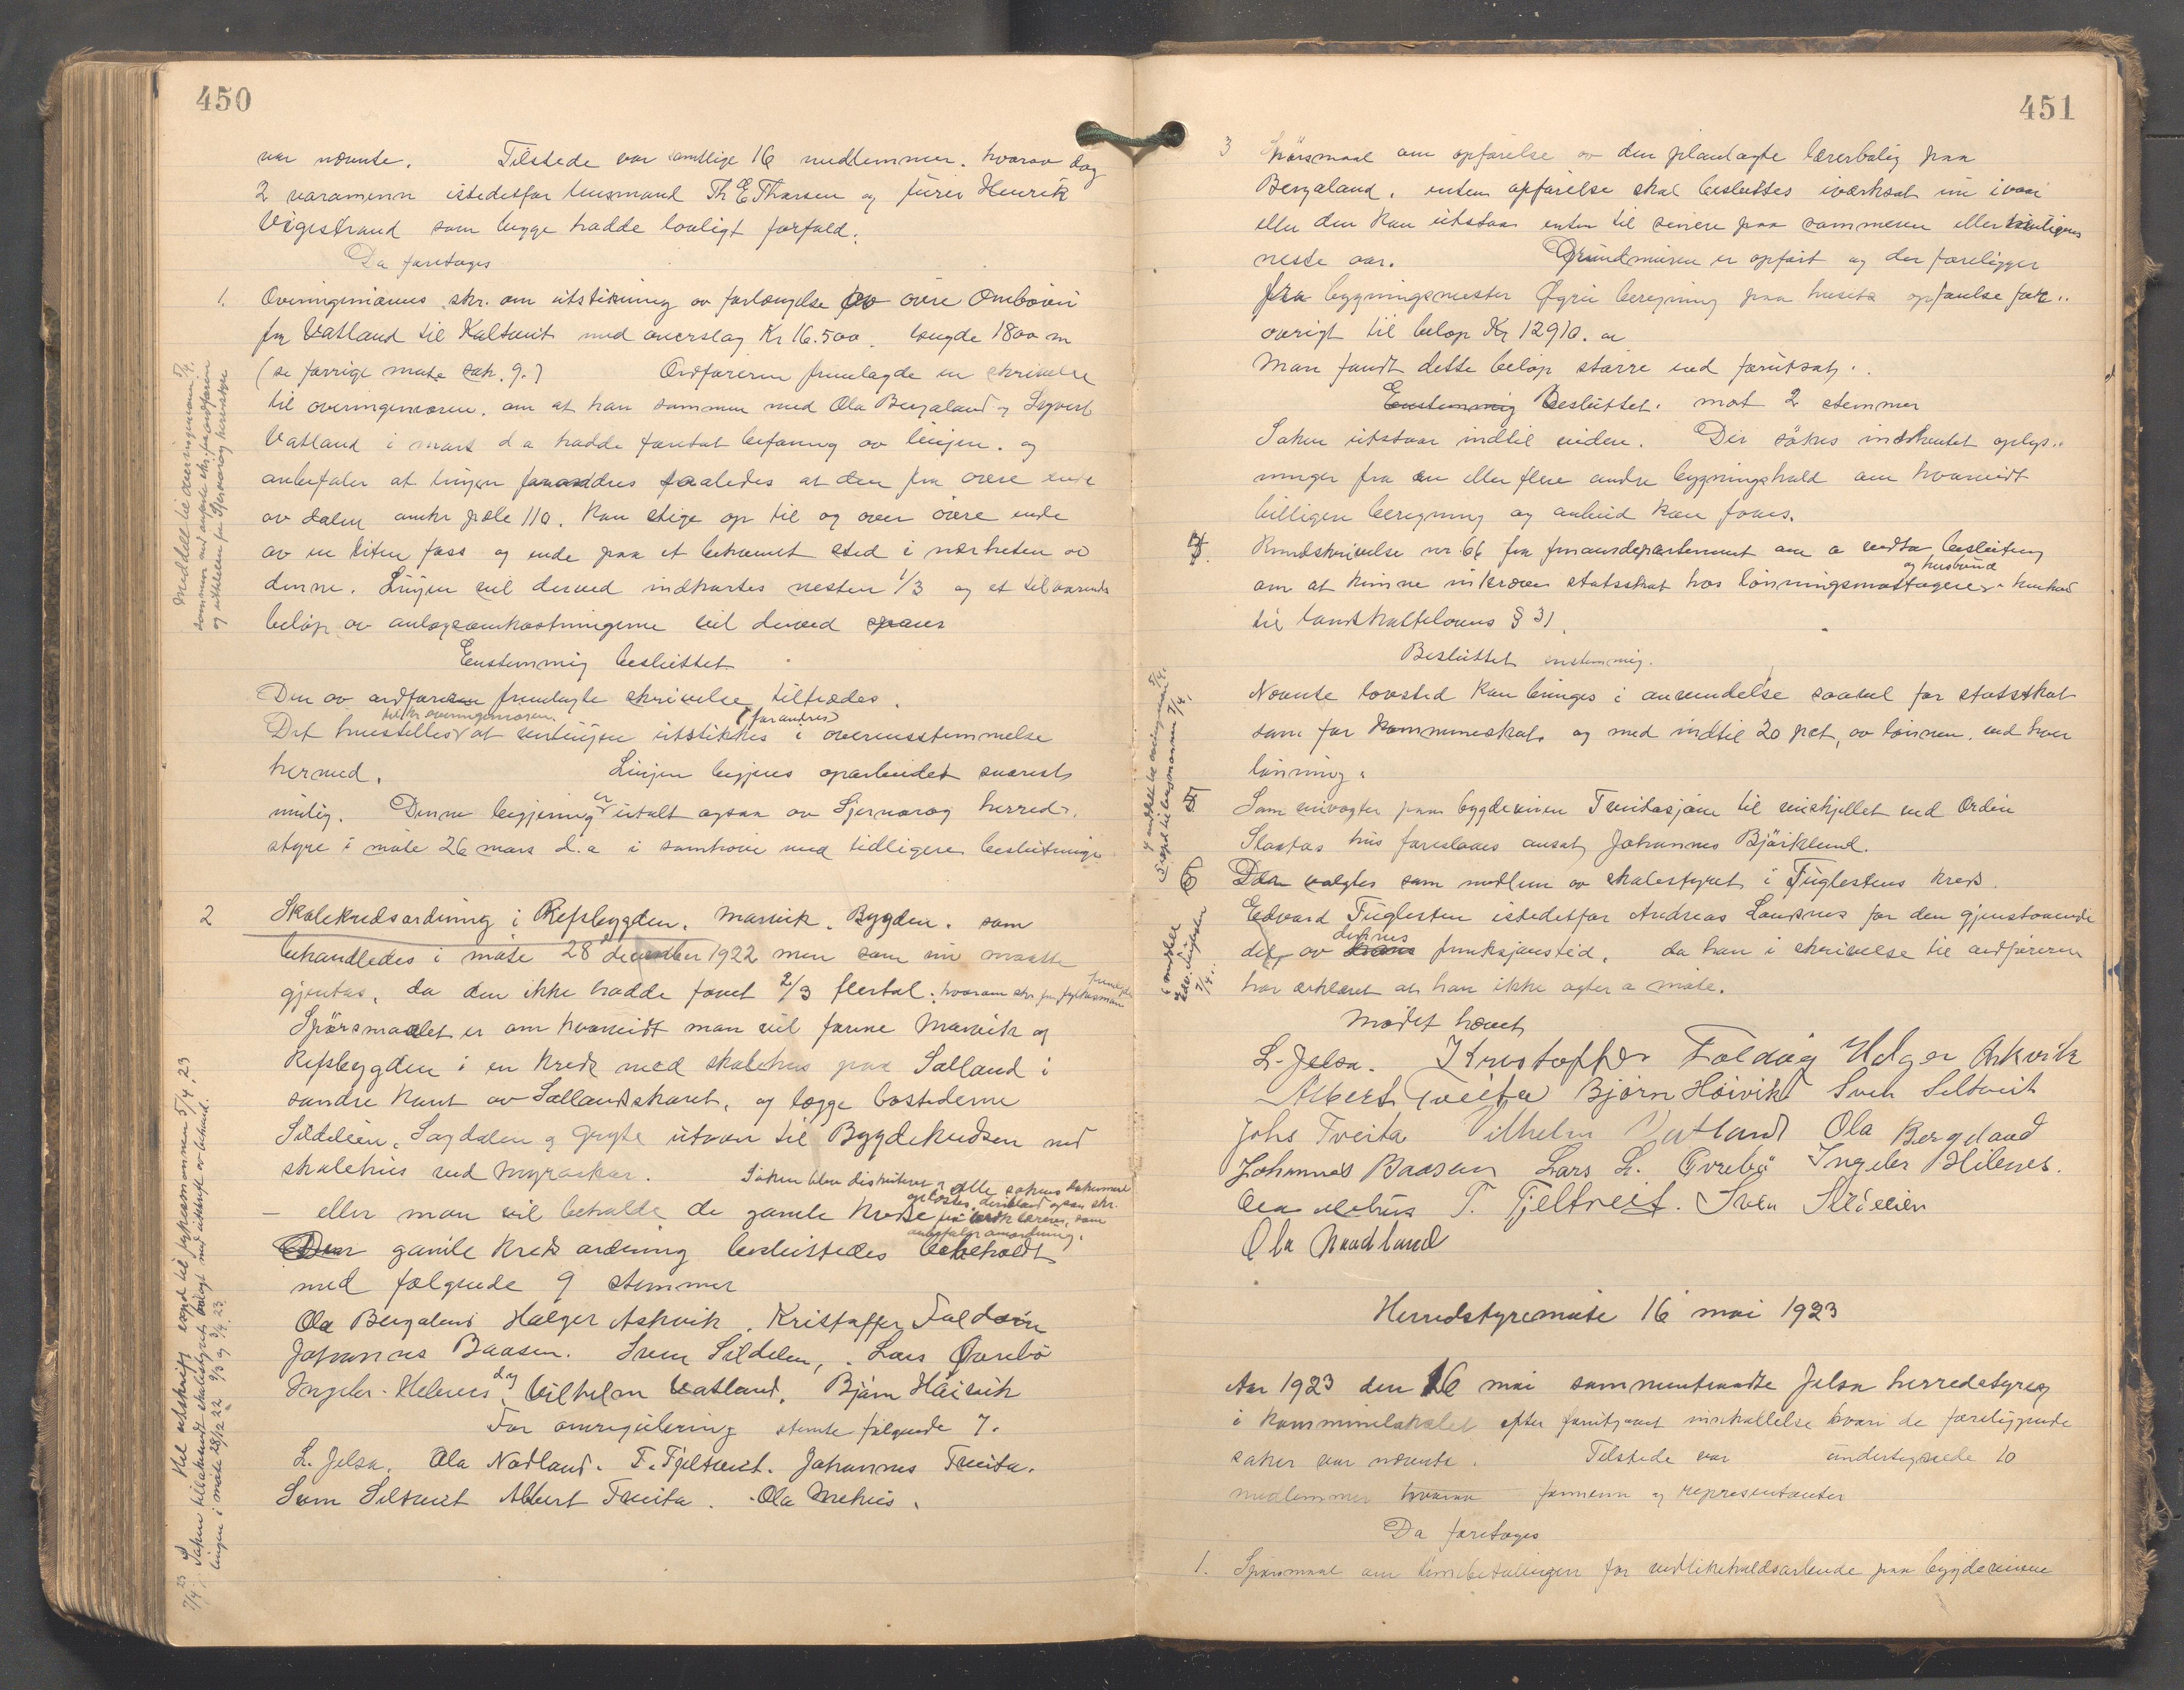 450
var nævnte. Tilstede var samtlige 16 medlemmer. hvorav dog
2 varamenn istedetfor lensmand Th E Thorsen og Henrik
Vigestrand som begge hadde lovligt forfald.
Da foretoges
1. Overingeniørens skr. om utstikning av forlængelse av øvre Ombovei
fra Vatland til Kaltveit med overslag Kr 16.500. længde 1800 m
(se forrige møte sak. 9.) Ordføreren fremlagde en skrivelse
til overingeniøren. om at han sammen med Ola Bergaland og Sigvart
Vatland i mars d a hadde foretat befaring av linjen. og
anbefaler at linjen forandres saaledes at den fra øvre ende
av dalen omkr pæle 110. kan stige op til og over øvre ende
av en liten foss og ende paa et bekvemt sted i nærheten av
denne. Linjen vil derved indkortes nesten 1/3 og et tilsvarende
beløp av anlægsomkostningerne vil derved spares
Enstemmig besluttet
Den av ordføreren fremlagte skrivelse tiltrædes.
til hr overingeniøren. (forandres)
Det henstilles at veilinjen utstikkes i overensstemmelse
hermed. Linjen begjæres oparbeidet snarest
mulig. Denne begjæring er uttalt ogsaa av Sjernarøy herred-
styre i møte 26 mars d. a i samhøve med tidligere beslutninger
2 Skolekredsordning i Refsbygden. Marvik. Bygden. som
behandledes i møte 28 december 1922 men som nu maatte
gjentas, da den ikke hadde faaet 2/3 flertal. hvorom skr. fra fylkesmann
Spørsmaalet er om hvorvidt man vil forene Marvik og
Refsbygden i en kreds med skolehus paa Salland i
søndre kant av Sallandskaret, og lægge bostederne
Sildeleien. Sagdalen og Gryte utvor til Bygdekredsen med
skolehus ved Myraskar. Saken blev diskuteret og alle sakens dokumenter
oplæstes, deriblandt ogsaa skr.
– eller man vil beholde de gamle kredse fra lærerne, som
anbefaler omordning.
Den gamle kreds ordning besluttedes bibeholdt
med følgende 9 stemmer
Ola Bergaland Holger Askvik. Kristoffer Foldøin
Johannes Baasen. Sven Sildelen, Lars Øvrebø
Ingebr. Helvnes og Vilhelm Vatland. Bjørn Høivik
For omregulering stemte følgende 7.
L. Jelsa. Ola Nødland. T. Tjeltveit. Johannes Tveita.
Sven Seltveit Albert Tveita. Ola Mehus.
Meddelt til overingeniøren 5/4.
sammen med omførte skr. fra ordføreren
og uttalelsen fra Sjernarøy herredstyre
Hel utskrift send til fylkesmannen 5/4. 23
7/4 23 Saken tilbakesendt skolestyret bilagt med utskrift av behand-
lingen i møte 28/12 22 9/3 og 3/4. 23.
451
3 Spørsmaal om opførelse av den planlagte lærerbolig paa
Bergaland. enten opførelse skal besluttes iværksat nu i vaar
eller den kan utstaa enten til senere paa sommeren eller
neste aar. Grundmuren er opført og der foreligger
fra bygningsmester Øgrei beregning paa husets opførelse for-
øvrigt til beløp Kr 12910. oo
Man fandt dette beløp større end forutsat.
Enstemmig Besluttet. mot 2 stemmer
Saken utstaar indtil videre. Der søkes indhentet oplys-
ninger fra en eller flere andre bygningshold om hvorvidt
billigere beregning og anbud kan faaes.
4 Rundskrivelse nr. 66 fra finansdepartementet om a vedta beslutning
og husbond
om at kunne inkræve statsskat hos lønningsmottagere henhold
til landskattelovens § 31.
Besluttet enstemmig.
Nævnte lovsted kan bringes i anvendelse saavel for statsskat
som for kommuneskat. og med indtil 20 pct, av lønnen. ved hver
lønning.
5 Som veivogter paa bygdeveien Tveitasjøen til veiskjellet ved Ordin
Slaataas hus foreslaaes ansat Johannes Bjørklund.
6 Der valgtes som medlem av skolestyret i Fuglestens kreds.
Edvard Fuglesten istedetfor Andreas Landsnes for den gjenstaaende
dennes
del av hans funksjonstid. da han i skrivelse til ordføreren
har erklæret at han ikke agter a møte.
Mødet hævet
L. Jelsa. Kristoffer Foldøy Holger Askvik
Albert Tveita Bjørn Høivik Sven Seltveit
Johs Tveita Vilhelm Vatland Ola Bergaland
Johannes Baasen Lars L. Øvrebø Ingebr Hilvnes.
Ola Mehus T. Tjeltveit. Sven Sildelien
Ola Naadland
6 meddelt
Edv. Fuglesten
7/4.
Herredstyremøte 16 mai 1923
Aar 1923 den 16 mai sammentraadte Jelsa herredstyre
i kommunelokalet efter forutgaaet innkallelse hvori de foreliggende
saker var nævnte. Tilstede var undertegnede 10
medlemmer hvorav formenn og representanter
Da foretoges
1. Spørsmaal om timebetalingen for vedlikeholdsarbeide paa bygdeveiene